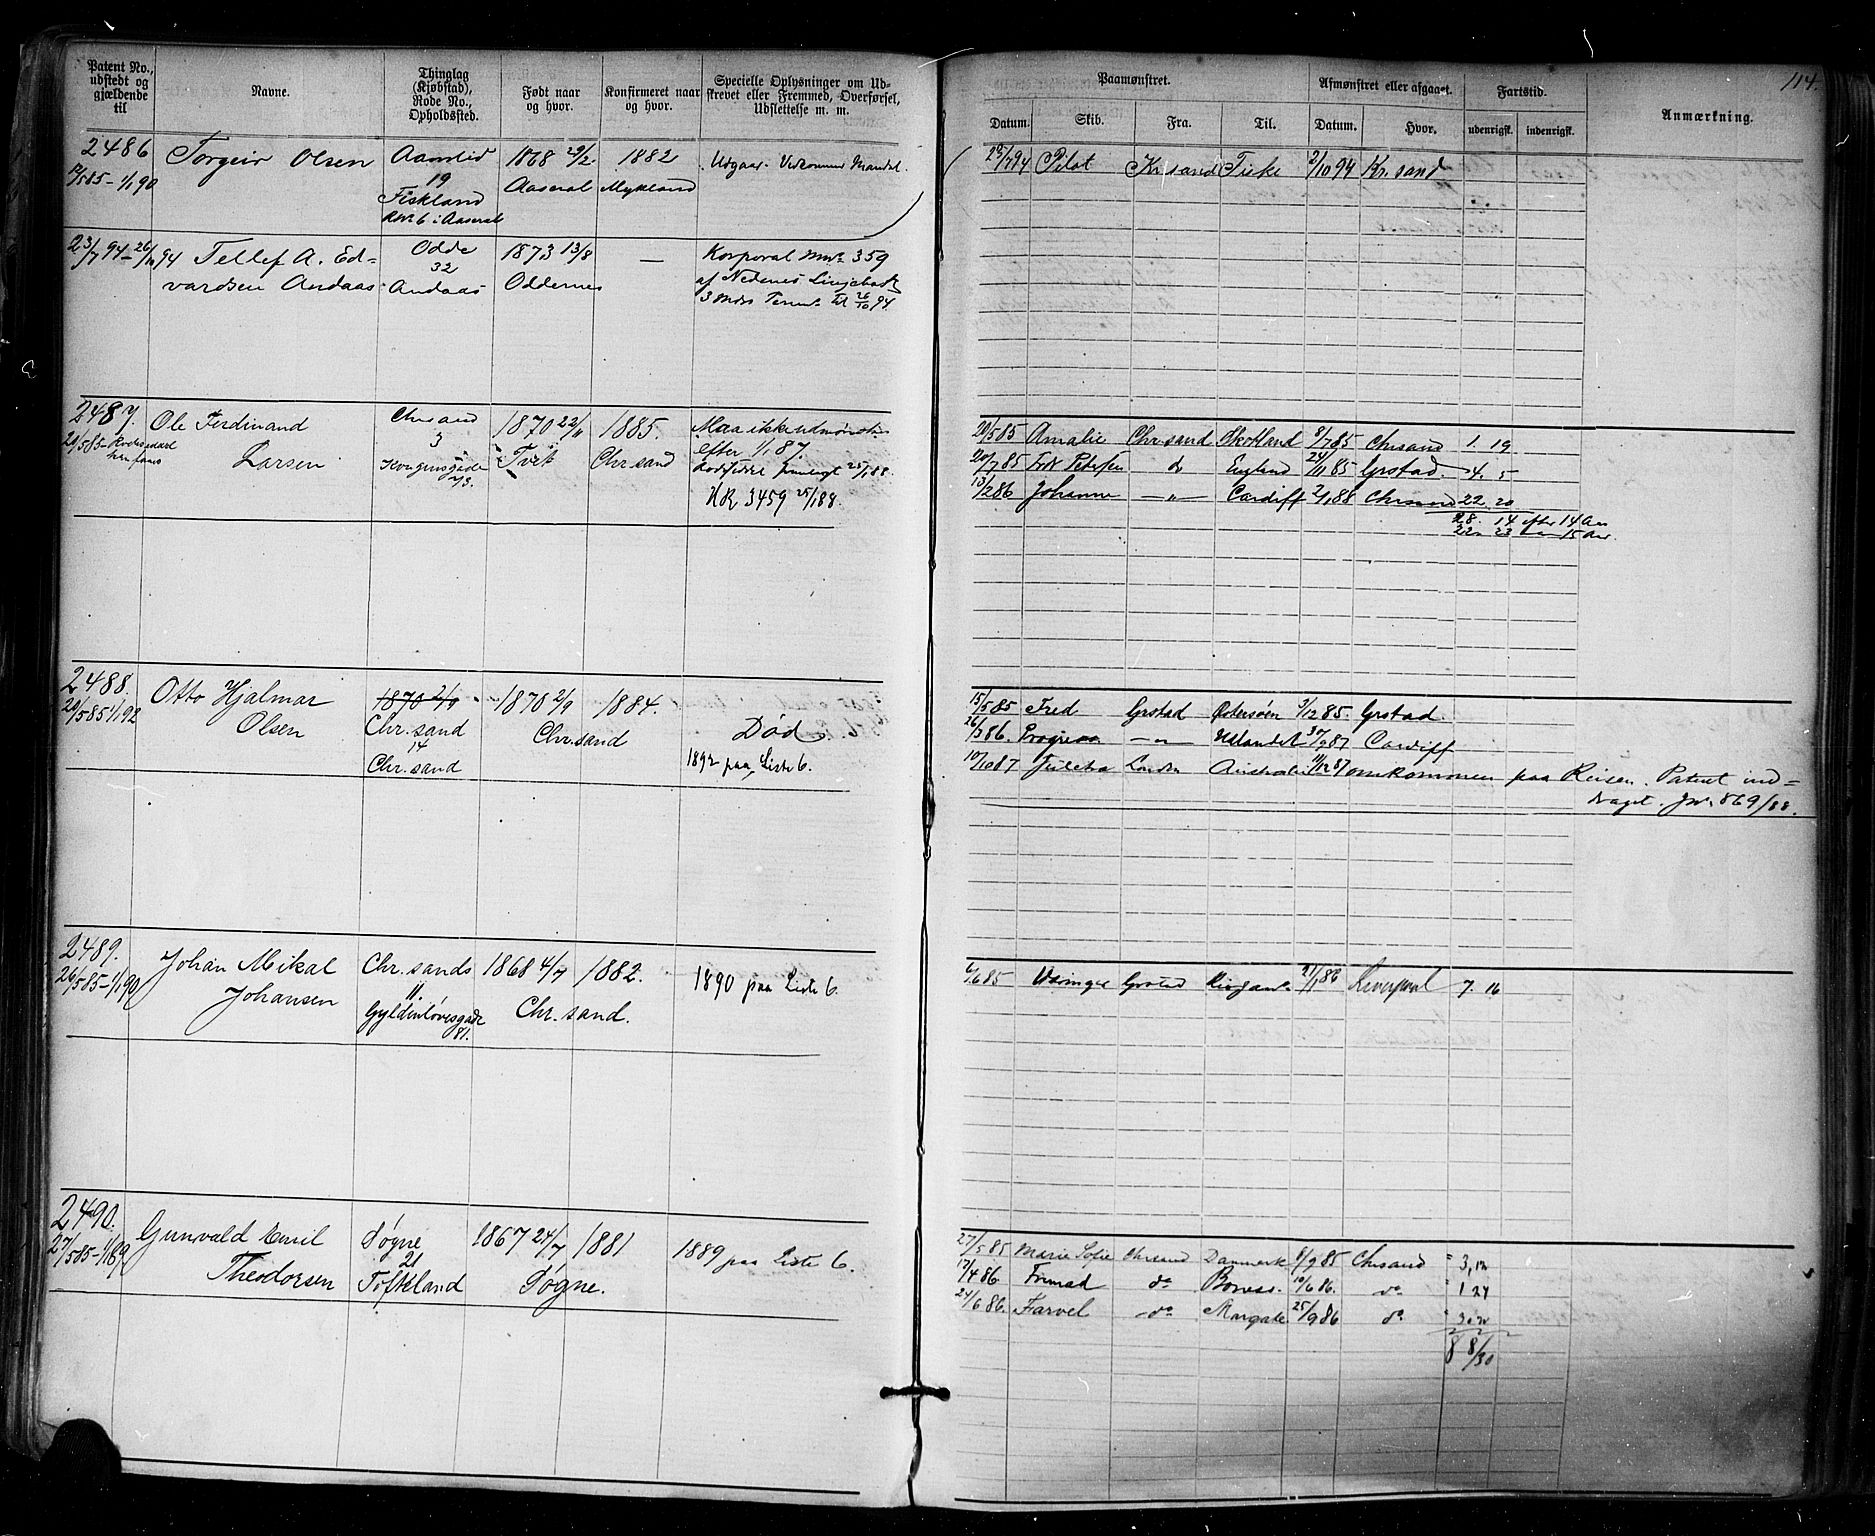 114.
Patent No., udstedt og gjældende til
Navne.
Thinglag (Kjøbstad), Rode No., Opholdssted.
Født naar og hvor.
Konfirmeret naar og hvor.
Specielle Oplysninger om Udskrevet eller Fremmed, Overførsel, Udslettelse m. m.
Paamønstret.
Afmønstret eller afgaaet.
Fartstid.
Anmærkning.
Datum. Skib. Fra. Til. Datum. Hvor. udenrigsk. indenrigsk.
2486 Torgeir Olsen Aamlid 1868 29/2 1882 Udgaar. Mandal.
585 - 1/1 90 19 Aaseral Mykland
Fiskland
i Aaseral
29/7 94 Pilot Kr.sand Fiske 2/10 94 Kr. sand
23/7 94 - 26/10 94 Tellef A. Ed- Odde 1873 13/8 — Korporal 359
vardsen Andaas 32 Oddernes af Nedenes
Andaas 3 Mdrs til 26/10 94
2487. Ole Ferdinand Chrsand 1870 22/11 1885. Maa ikke udmønstres
20/5 85 Larsen 3 Tveit Chr.sand efter 1/1 87.
Kongensgade 25/1 88
73. HR 3459 25/1 88.
20/5 85 Amalie Chr.sand Skotland 8/7 85 Chrsand 1. 19
20/7 85 Petersen do England 24/11 85 Grstad. 4. 5
13/2 86 Johanne —„— Cardiff 2/1 88 Chrsand 22. 20
28. 14 efter 14 Aar
22 23 15 Aar
2488. Otto Hjalmar 1870 2/9 1870 2/9 1884. Død
20/5 85 1/1 92 Olsen Chr.sand Chr.sand 1892 paa Liste 6.
14
Chr.sand
15/5 85 Fred Grstad Østersøen 9/12 85. Grstad.
26/3 86. —„— Udlandet 30/9 87 Cardiff
10/10 87 London Australien 11/12 87 omkommen paa Reisen. Patent ind-
draget. Jno 869/88.
2489. Johan Mikal Chr. sands 1868 4/7 1882. 1890 paa Liste 6.
26/5 85 - 1/1 90 Johansen 11. Chr. sand.
Gyldenløvesgade
81.
6/6 85 Væringer Grstad 21/1 86 Liverpool 7. 16
2490. Gunvald Emil Søgne 1867 24/7 1881 1889 paa Liste 6.
27/5 85 - 1/1 89 Theodorsen 21 Søgne.
Tofteland
27/5 85 Marie Sofie Chrsand Danmark 8/9 85 Chrsand " 3,12
17/4 86 do 10/6 86. do " 1 24
24/6 86. Farvel do Margate 25/9 86 do
8 8/30